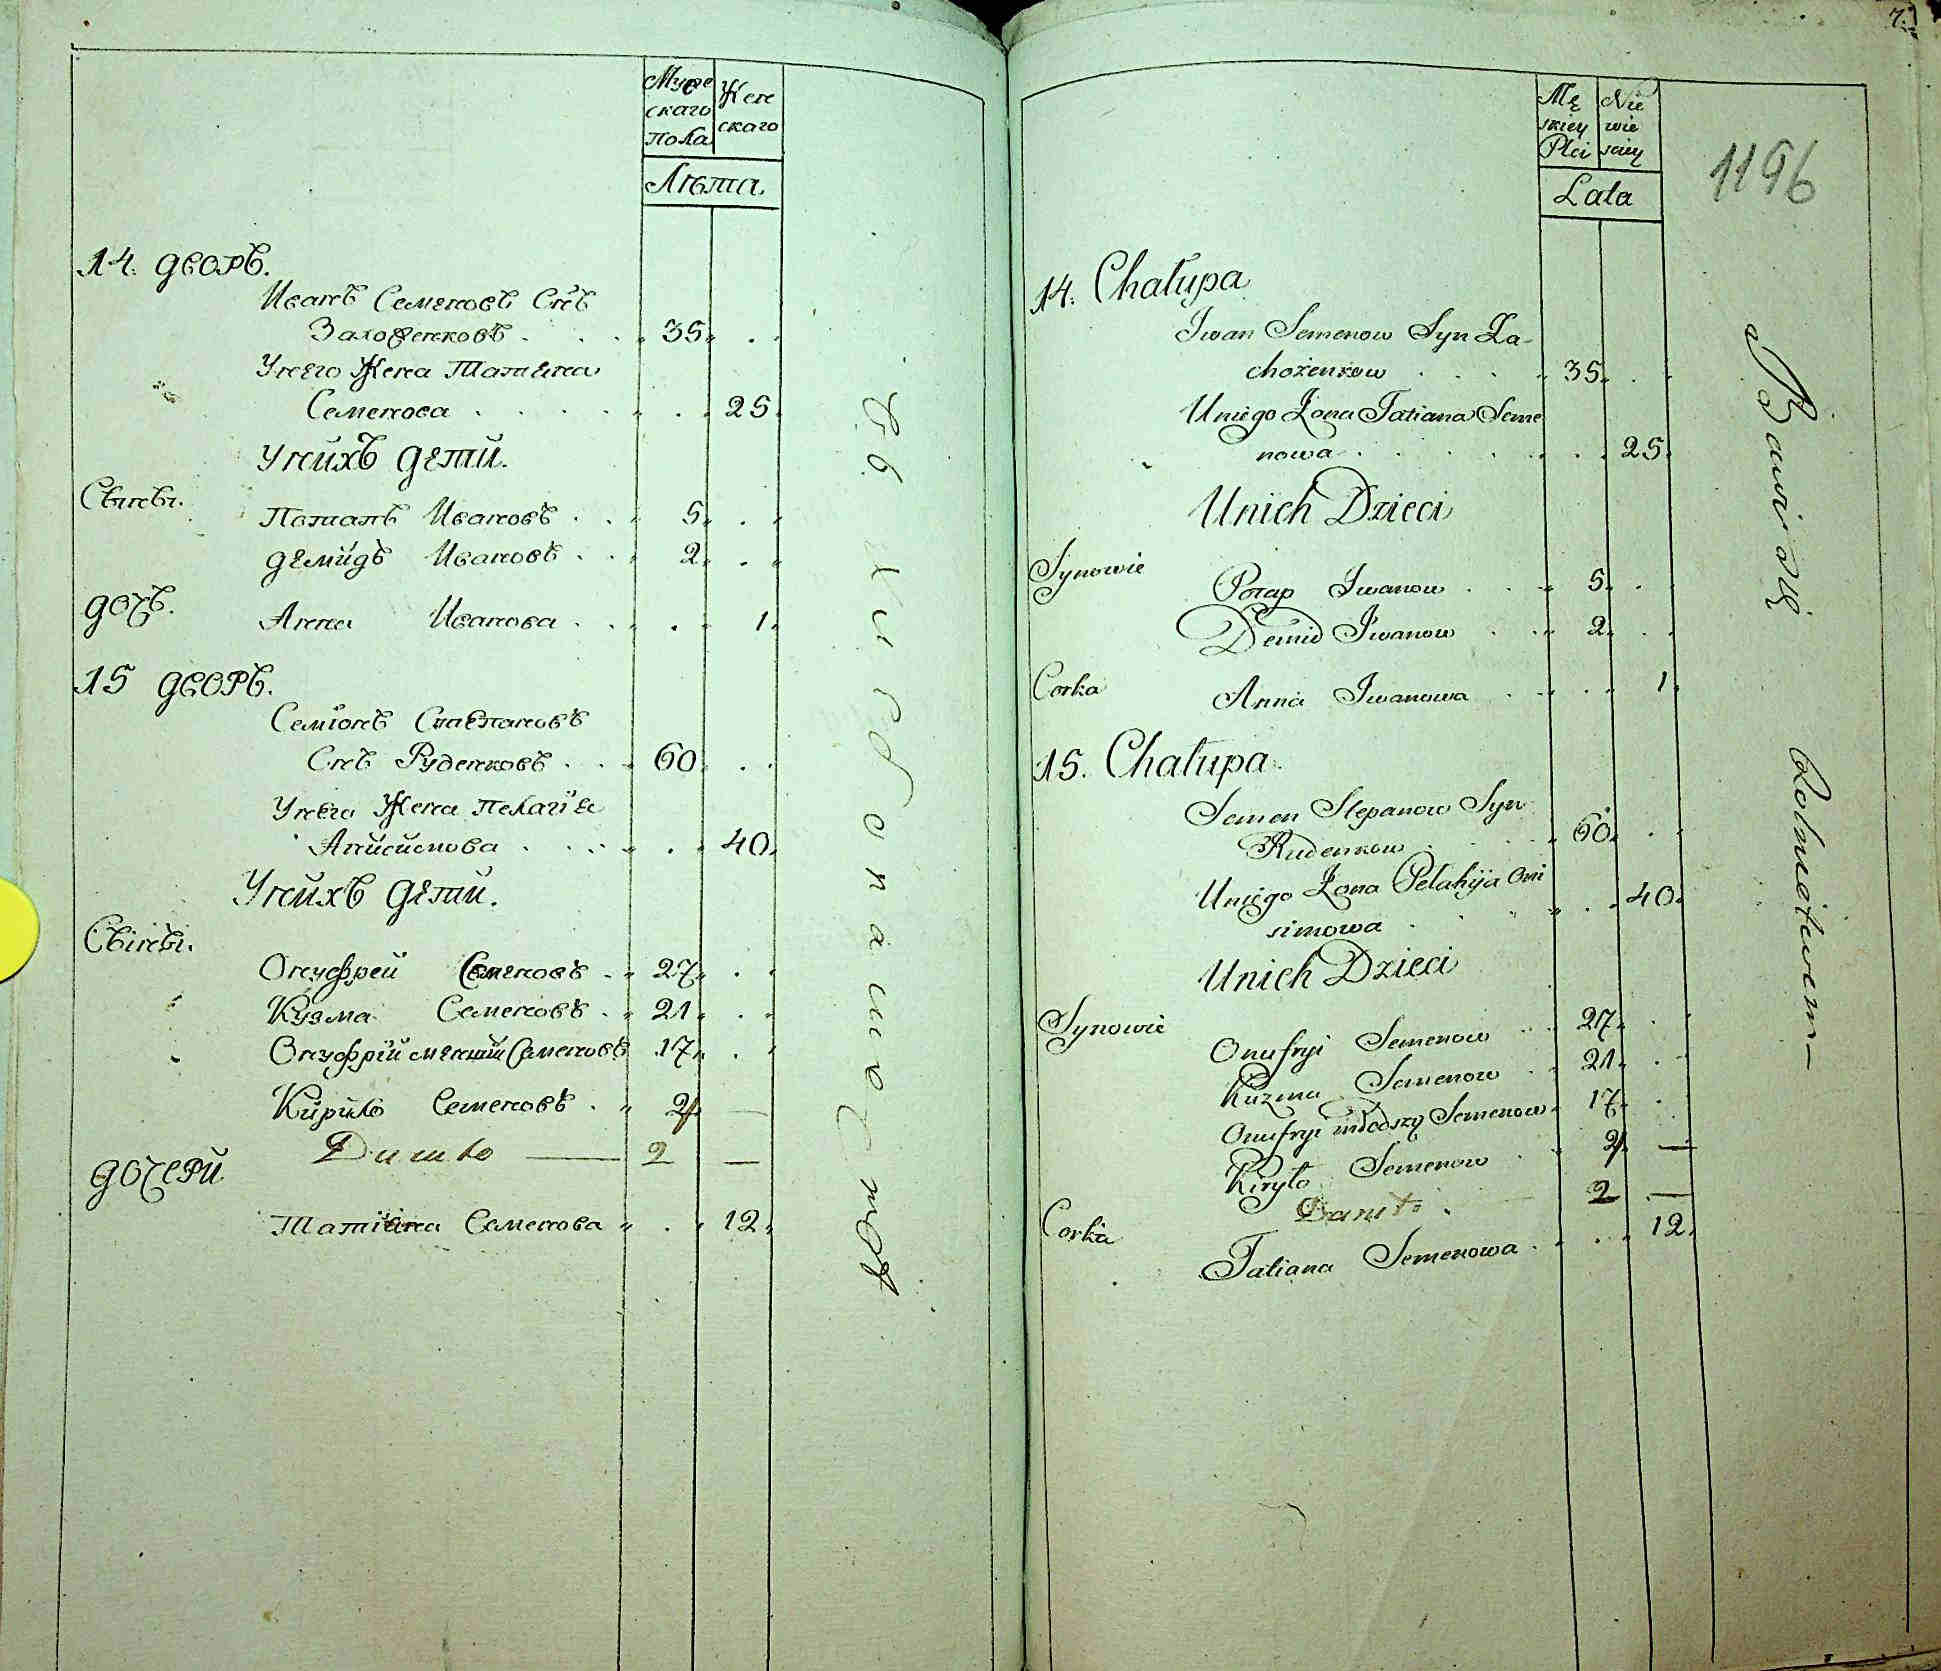 Муже Жен
скаго скаго
пола
Лѣта
14. дворъ.
Иванъ Семеновъ Снъ
Захоженковъ . . . 35. .
Унего Жена Татiяна
Семенова . . . . . 25.
Унихъ дети.
Сыны.
Потапъ Ивановъ . . 5. .
демидъ Ивановъ . . 2. .
дочь.
Анна Иванова . . . 1.
15 дворъ.
Семiонъ Степановъ
Снъ Руденковъ . . 60. .
Унего Жена пелагiя
Анисимова . . . . 40.
Унихъ дети.
Сыны.
Онуфрей Семеновъ . 27. .
Кузма Семеновъ . 21. .
Онуфрiй меншiй Семеновъ 17. .
Кирило Семеновъ . 4 —
Данило — 2 —
дочери
Татiяна Семенова . 12.
7.
1196
Mę Nie
skiey wie
Płci sciey
Lata
14. Chałupa
Iwan Semenow Syn Za-
chożenkow . . . . 35. .
Uniego Żona Tatiana Seme
nowa . . . . . . 25.
Unich Dzieci
Synowie
Potap Iwanow . . 5. .
Demid Iwanow . . 2. .
Corka
Anna Iwanowa . . . 1.
15. Chałupa
Semen Stepanow Syn
Rudenkow . . . 60. .
Uniego Żona Pelahija Oni
simowa . . . . 40.
Unich Dzieci
Synowie
Onufryi Semenow . . 27. .
Kuzma Semenow . . 21. .
Onufryi młodszy Semenow 17. .
Kiryło Semenow . 4 —
Daniło . 2 —
Corka
Tatiana Semenowa . . . 12.
Bawi się